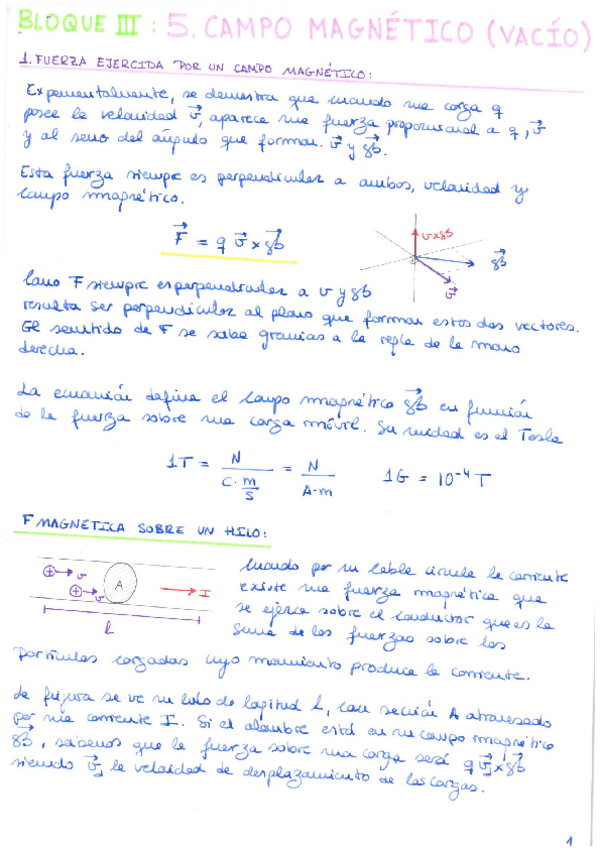 BLOQUE III: 5. CAMPO MAGNÉTICO (VACÍO)
1. FUERZA EJERCIDA POR UN CAMPO MAGNÉTICO:
Experimentalmente, se demuestra que cuando una carga q
posee la velocidad v⃗, aparece una fuerza proporcional a q, v⃗
y al seno del ángulo que forman v⃗ y B⃗.
Esta fuerza siempre es perpendicular a ambos, velocidad y
campo magnético.
F⃗ = q v⃗ × B⃗
v×B
B⃗
v⃗
Como F siempre es perpendicular a v y B
resulta ser perpendicular al plano que forman estos dos vectores.
El sentido de F se sabe gracias a la regla de la mano
derecha.
La ecuación define el campo magnético B⃗ en función
de la fuerza sobre una carga móvil. Su unidad es el Tesla
1T = N / (C · m/s) = N / (A·m)    1G = 10⁻⁴ T
F MAGNETICA SOBRE UN HILO:
+ → v
+ → v
A
→ I
l
Cuando por un cable circula la corriente
existe una fuerza magnética que
se ejerce sobre el conductor que es la
suma de las fuerzas sobre las
partículas cargadas cuyo movimiento produce la corriente.
La figura se ve un hilo de logitud l, con sección A atravesado
por una corriente I. Si el alambre está en un campo magnético
B⃗, sabemos que la fuerza sobre una carga será q v⃗d × B⃗
siendo v⃗d la velocidad de desplazamiento de las cargas.
1